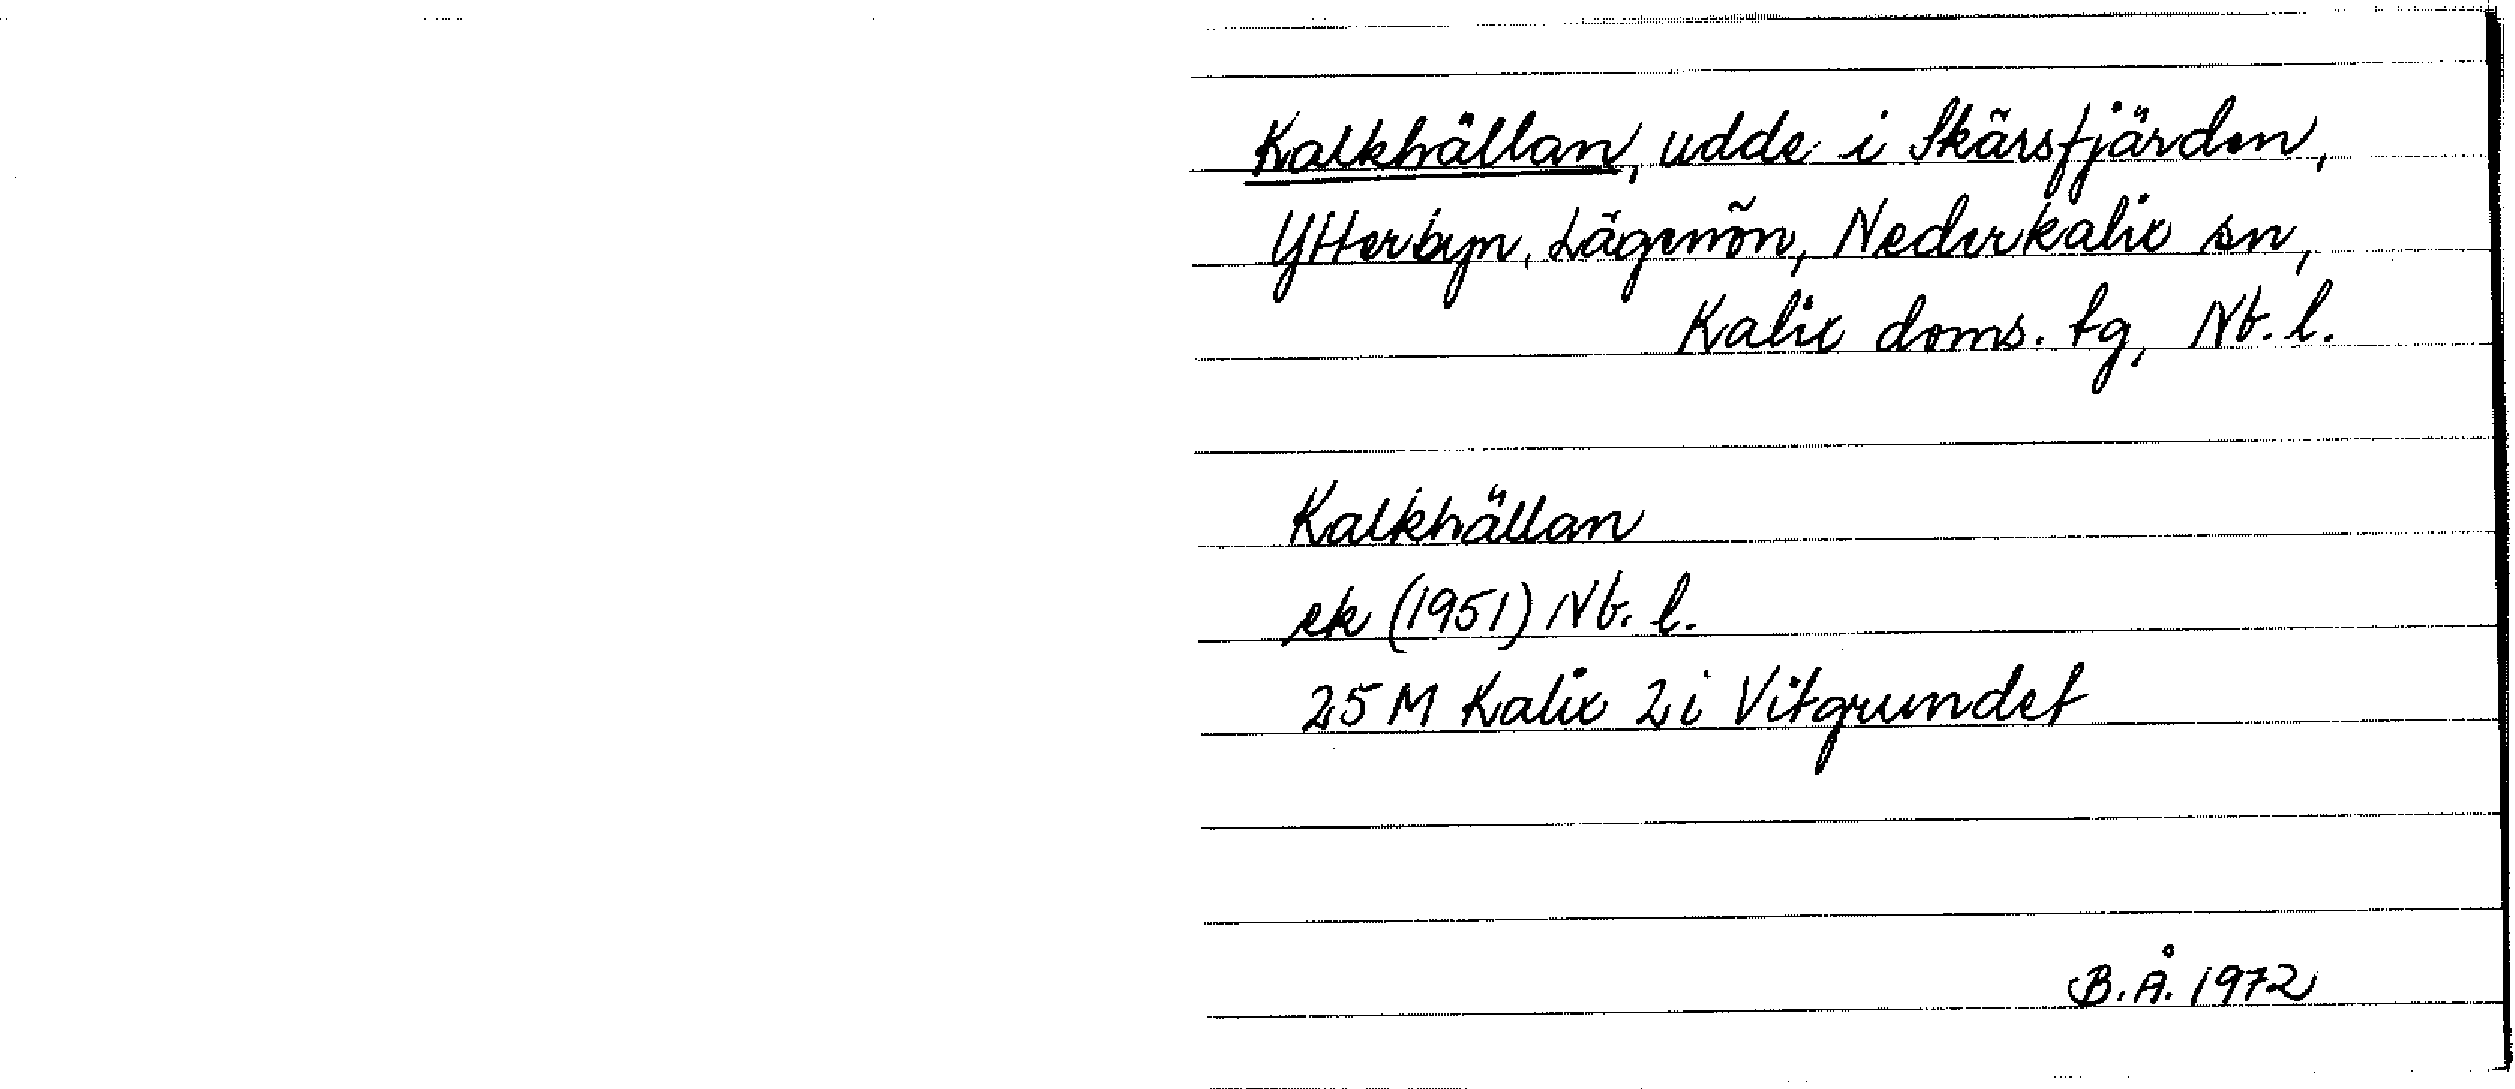 Kalkhällan, udde i Skärsfjärden,
Ytterbyn, Lägenön, Nederkalix sn,
Kalix doms. tg, Nb. l.
Kalkhällan
ek (1951) Nb. l.
25 M Kalix 2 i Vitgrundet
B. Å. 1972